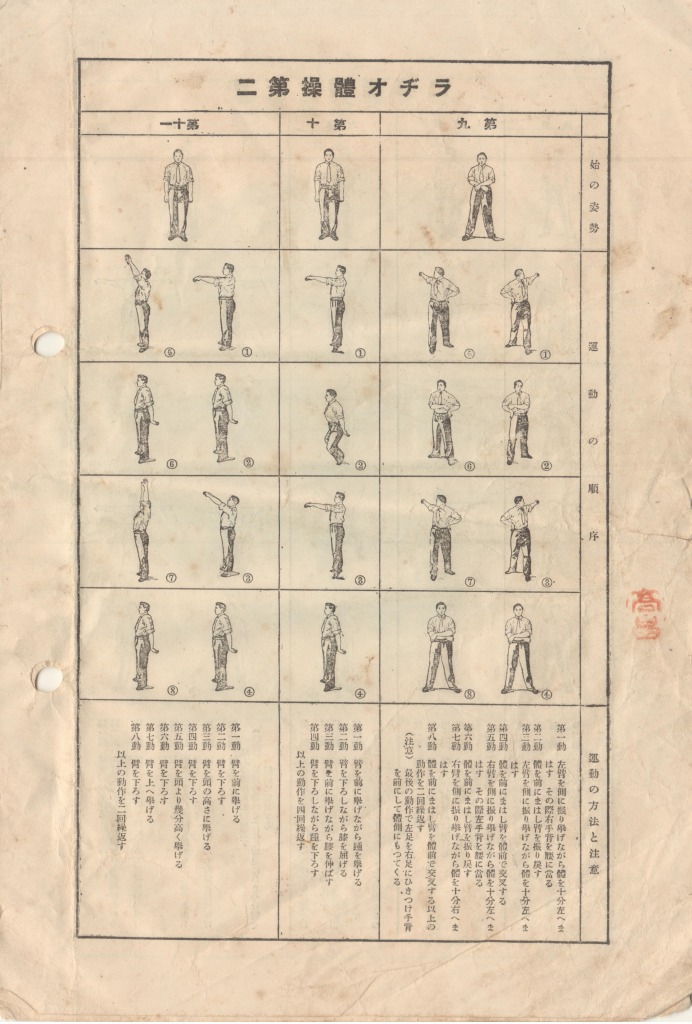 ラヂオ體操第二
第九
第十
第十一
始の姿勢
運動の順序
①
⑤
②
⑥
③
⑦
④
⑧
①
②
③
④
①
⑤
②
⑥
③
⑦
④
⑧
運動の方法と注意
第一動 左臂を側に振り擧げながら體を十分左へま
はす その際右手背を腰に當る
第二動 體を前にまはし臂を振り戻す
第三動 左臂を側に振り擧げながら體を十分左へま
はす
第四動 體を前にまはし臂を體前で交叉する
第五動 右臂を側に振り擧げながら體を十分左へま
はす その際左手背を腰に當る
第六動 體を前にまはし臂を振り戻す
第七動 右臂を側に振り擧げながら體を十分右へま
はす
第八動 體を前にまはし臂を體前で交叉する以上の
動作を二回繰返す
(注意) 最後の動作で左足を右足にひきつけ手背
を前にして體側にもつてくる
第一動 臂を前に擧げながら踵を擧げる
第二動 臂を下ろしながら膝を屈げる
第三動 臂を前に擧げながら膝を伸ばす
第四動 臂を下ろしながら踵を下ろす
以上の動作を四回繰返す
第一動 臂を前に擧げる
第二動 臂を下ろす
第三動 臂を頭の高さに擧げる
第四動 臂を下ろす
第五動 臂を頭より幾分高く擧げる
第六動 臂を下ろす
第七動 臂を上へ擧げる
第八動 臂を下ろす
以上の動作を二回繰返す